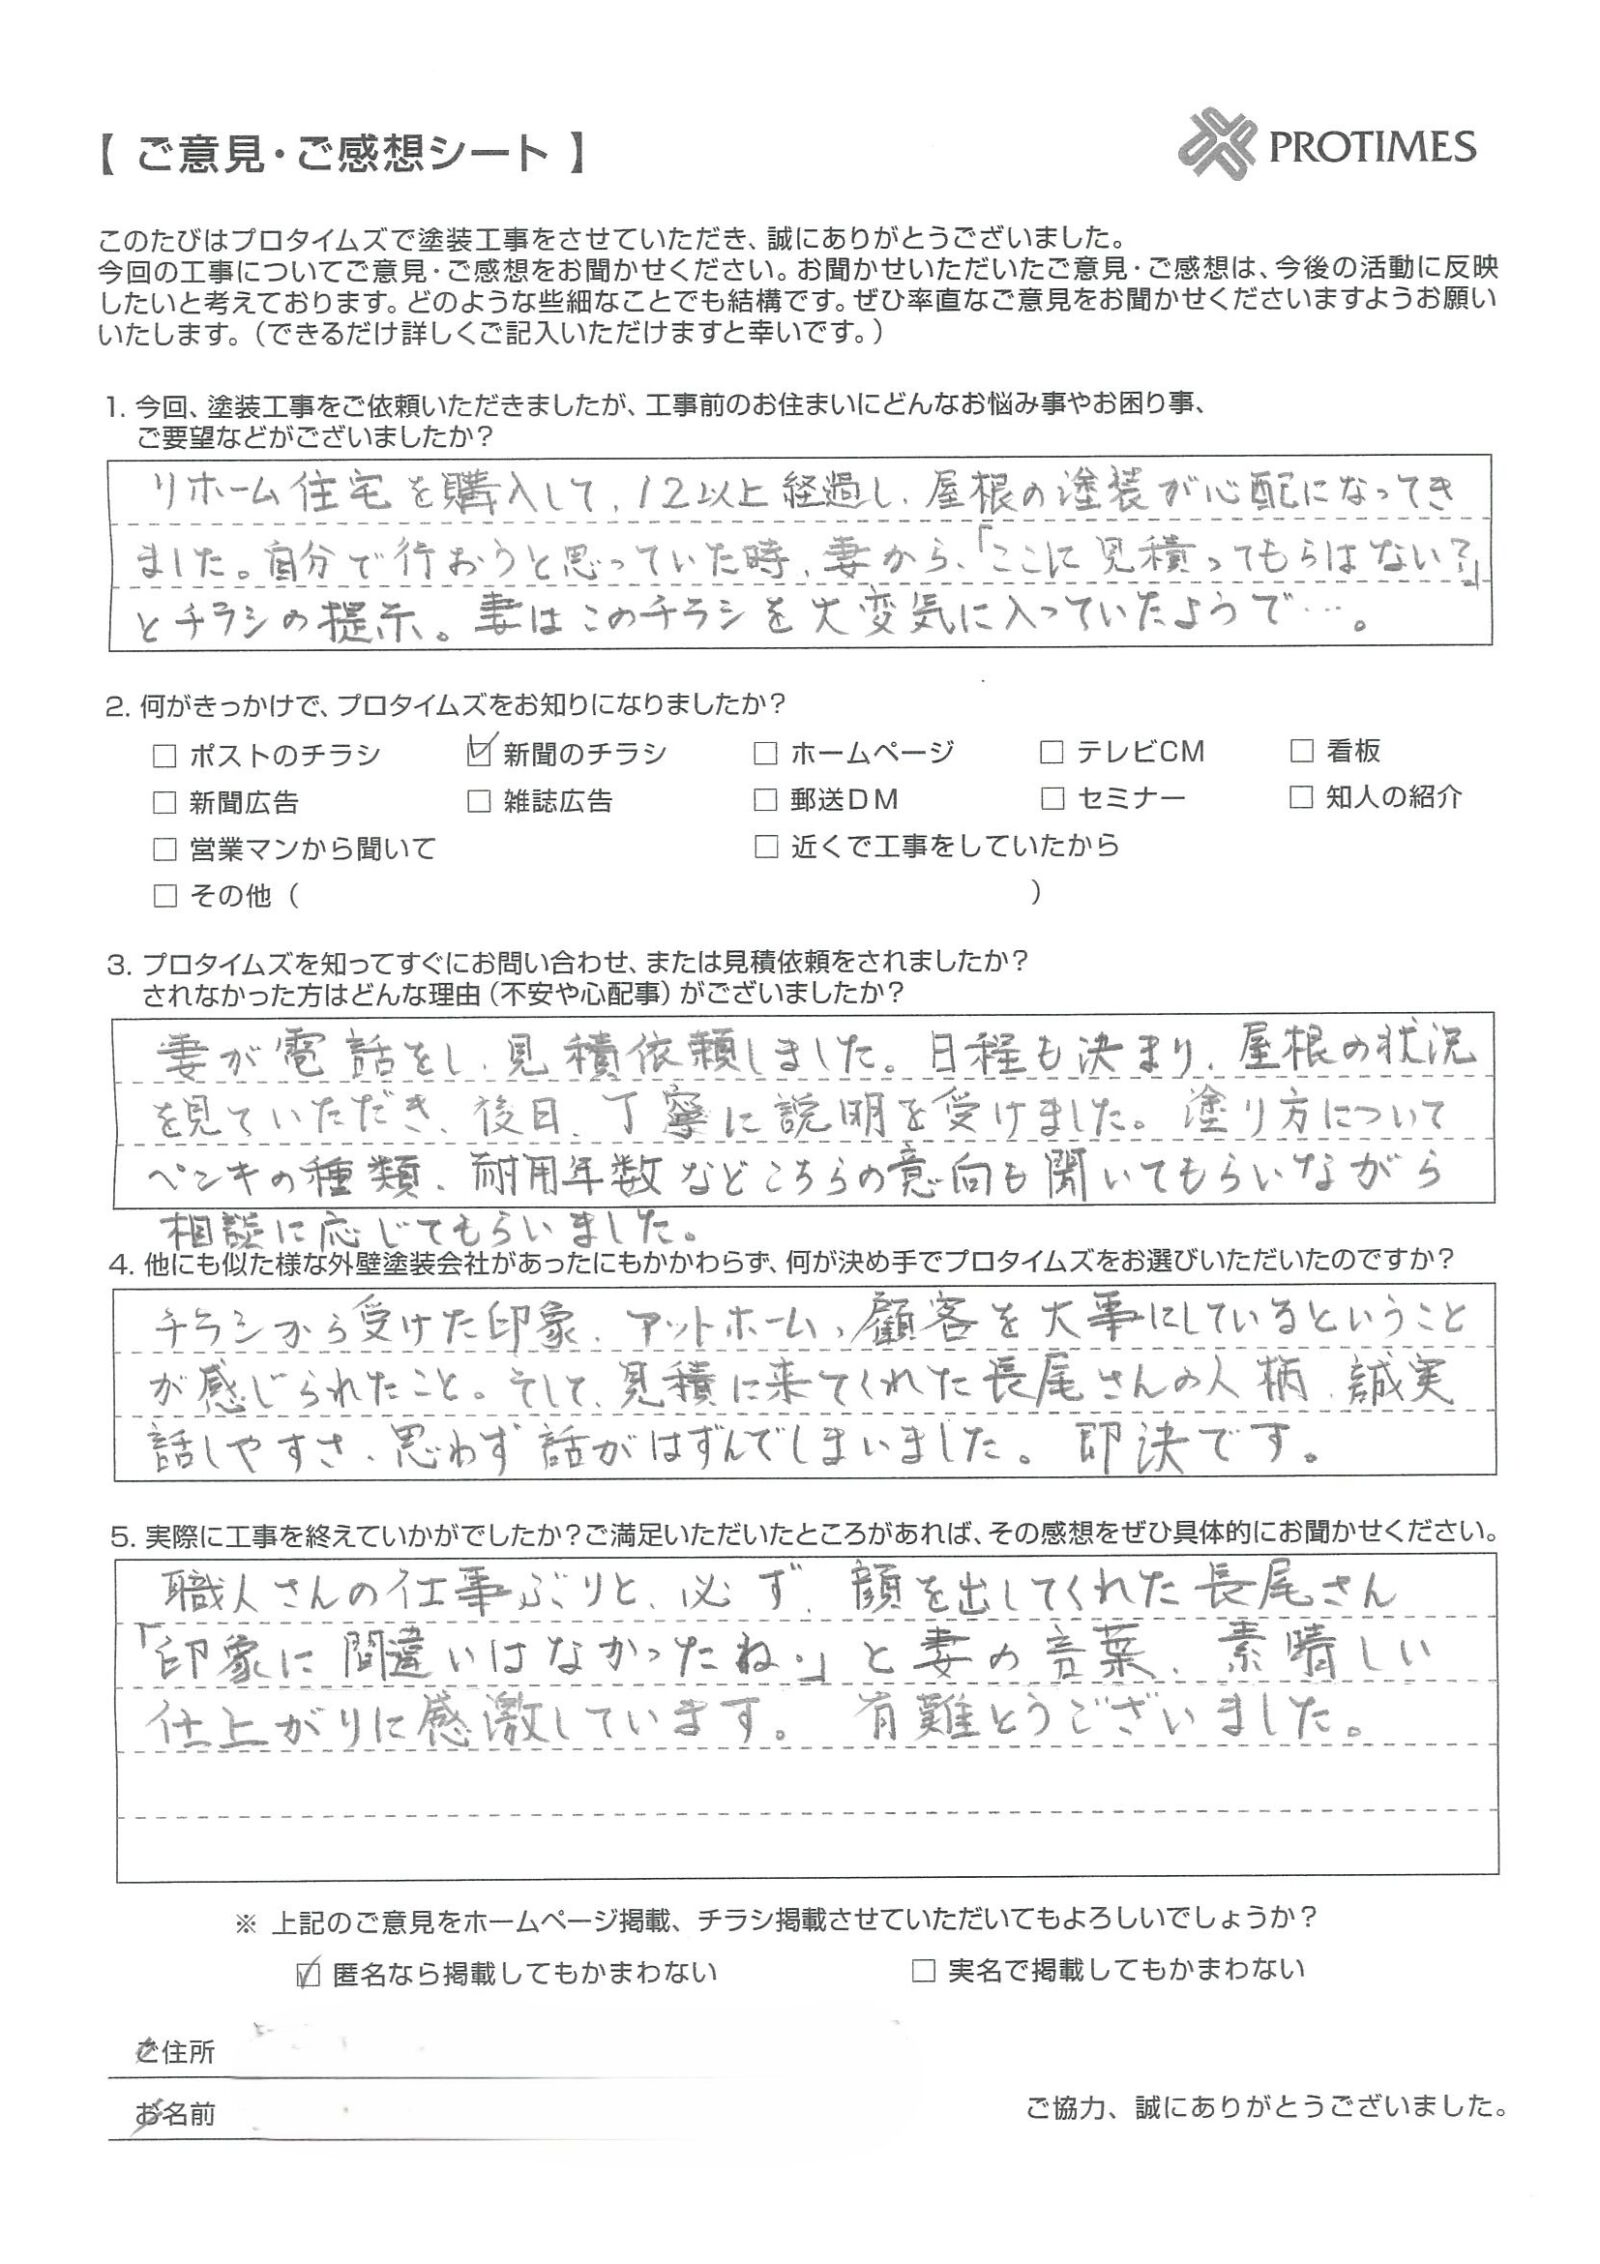 【 ご意見・ご感想シート 】
PROTIMES
このたびはプロタイムズで塗装工事をさせていただき、誠にありがとうございました。
今回の工事についてご意見・ご感想をお聞かせください。お聞かせいただいたご意見・ご感想は、今後の活動に反映
したいと考えております。どのような些細なことでも結構です。ぜひ率直なご意見をお聞かせくださいますようお願い
いたします。（できるだけ詳しくご記入いただけますと幸いです。）
1. 今回、塗装工事をご依頼いただきましたが、工事前のお住まいにどんなお悩み事やお困り事、
ご要望などがございましたか？
リホーム住宅を購入して、12以上経過し、屋根の塗装が心配になってき
ました。自分で行おうと思っていた時、妻から、「ここに見積ってもらはない？」
とチラシの提示。妻はこのチラシを大変気に入っていたようで…。
2. 何がきっかけで、プロタイムズをお知りになりましたか？
□ ポストのチラシ ☑ 新聞のチラシ □ ホームページ □ テレビCM □ 看板
□ 新聞広告 □ 雑誌広告 □ 郵送DM □ セミナー □ 知人の紹介
□ 営業マンから聞いて □ 近くで工事をしていたから
□ その他（ ）
3. プロタイムズを知ってすぐにお問い合わせ、または見積依頼をされましたか？
されなかった方はどんな理由（不安や心配事）がございましたか？
妻が電話をし、見積依頼しました。日程も決まり、屋根の状況
を見ていただき、後日、丁寧に説明を受けました。塗り方について
ペンキの種類、耐用年数などこちらの意向も聞いてもらいながら
相談に応じてもらいました。
4. 他にも似た様な外壁塗装会社があったにもかかわらず、何が決め手でプロタイムズをお選びいただいたのですか？
チラシから受けた印象、アットホーム、顧客を大事にしているということ
が感じられたこと。そして、見積に来てくれた長尾さんの人柄、誠実
話しやすさ、思わず話がはずんでしまいました。即決です。
5. 実際に工事を終えていかがでしたか？ご満足いただいたところがあれば、その感想をぜひ具体的にお聞かせください。
職人さんの仕事ぶりと、必ず、顔を出してくれた長尾さん
「印象に間違いはなかったね。」と妻の言葉、素晴しい
仕上がりに感激しています。有難とうございました。
※ 上記のご意見をホームページ掲載、チラシ掲載させていただいてもよろしいでしょうか？
☑ 匿名なら掲載してもかまわない □ 実名で掲載してもかまわない
ご住所
お名前
ご協力、誠にありがとうございました。